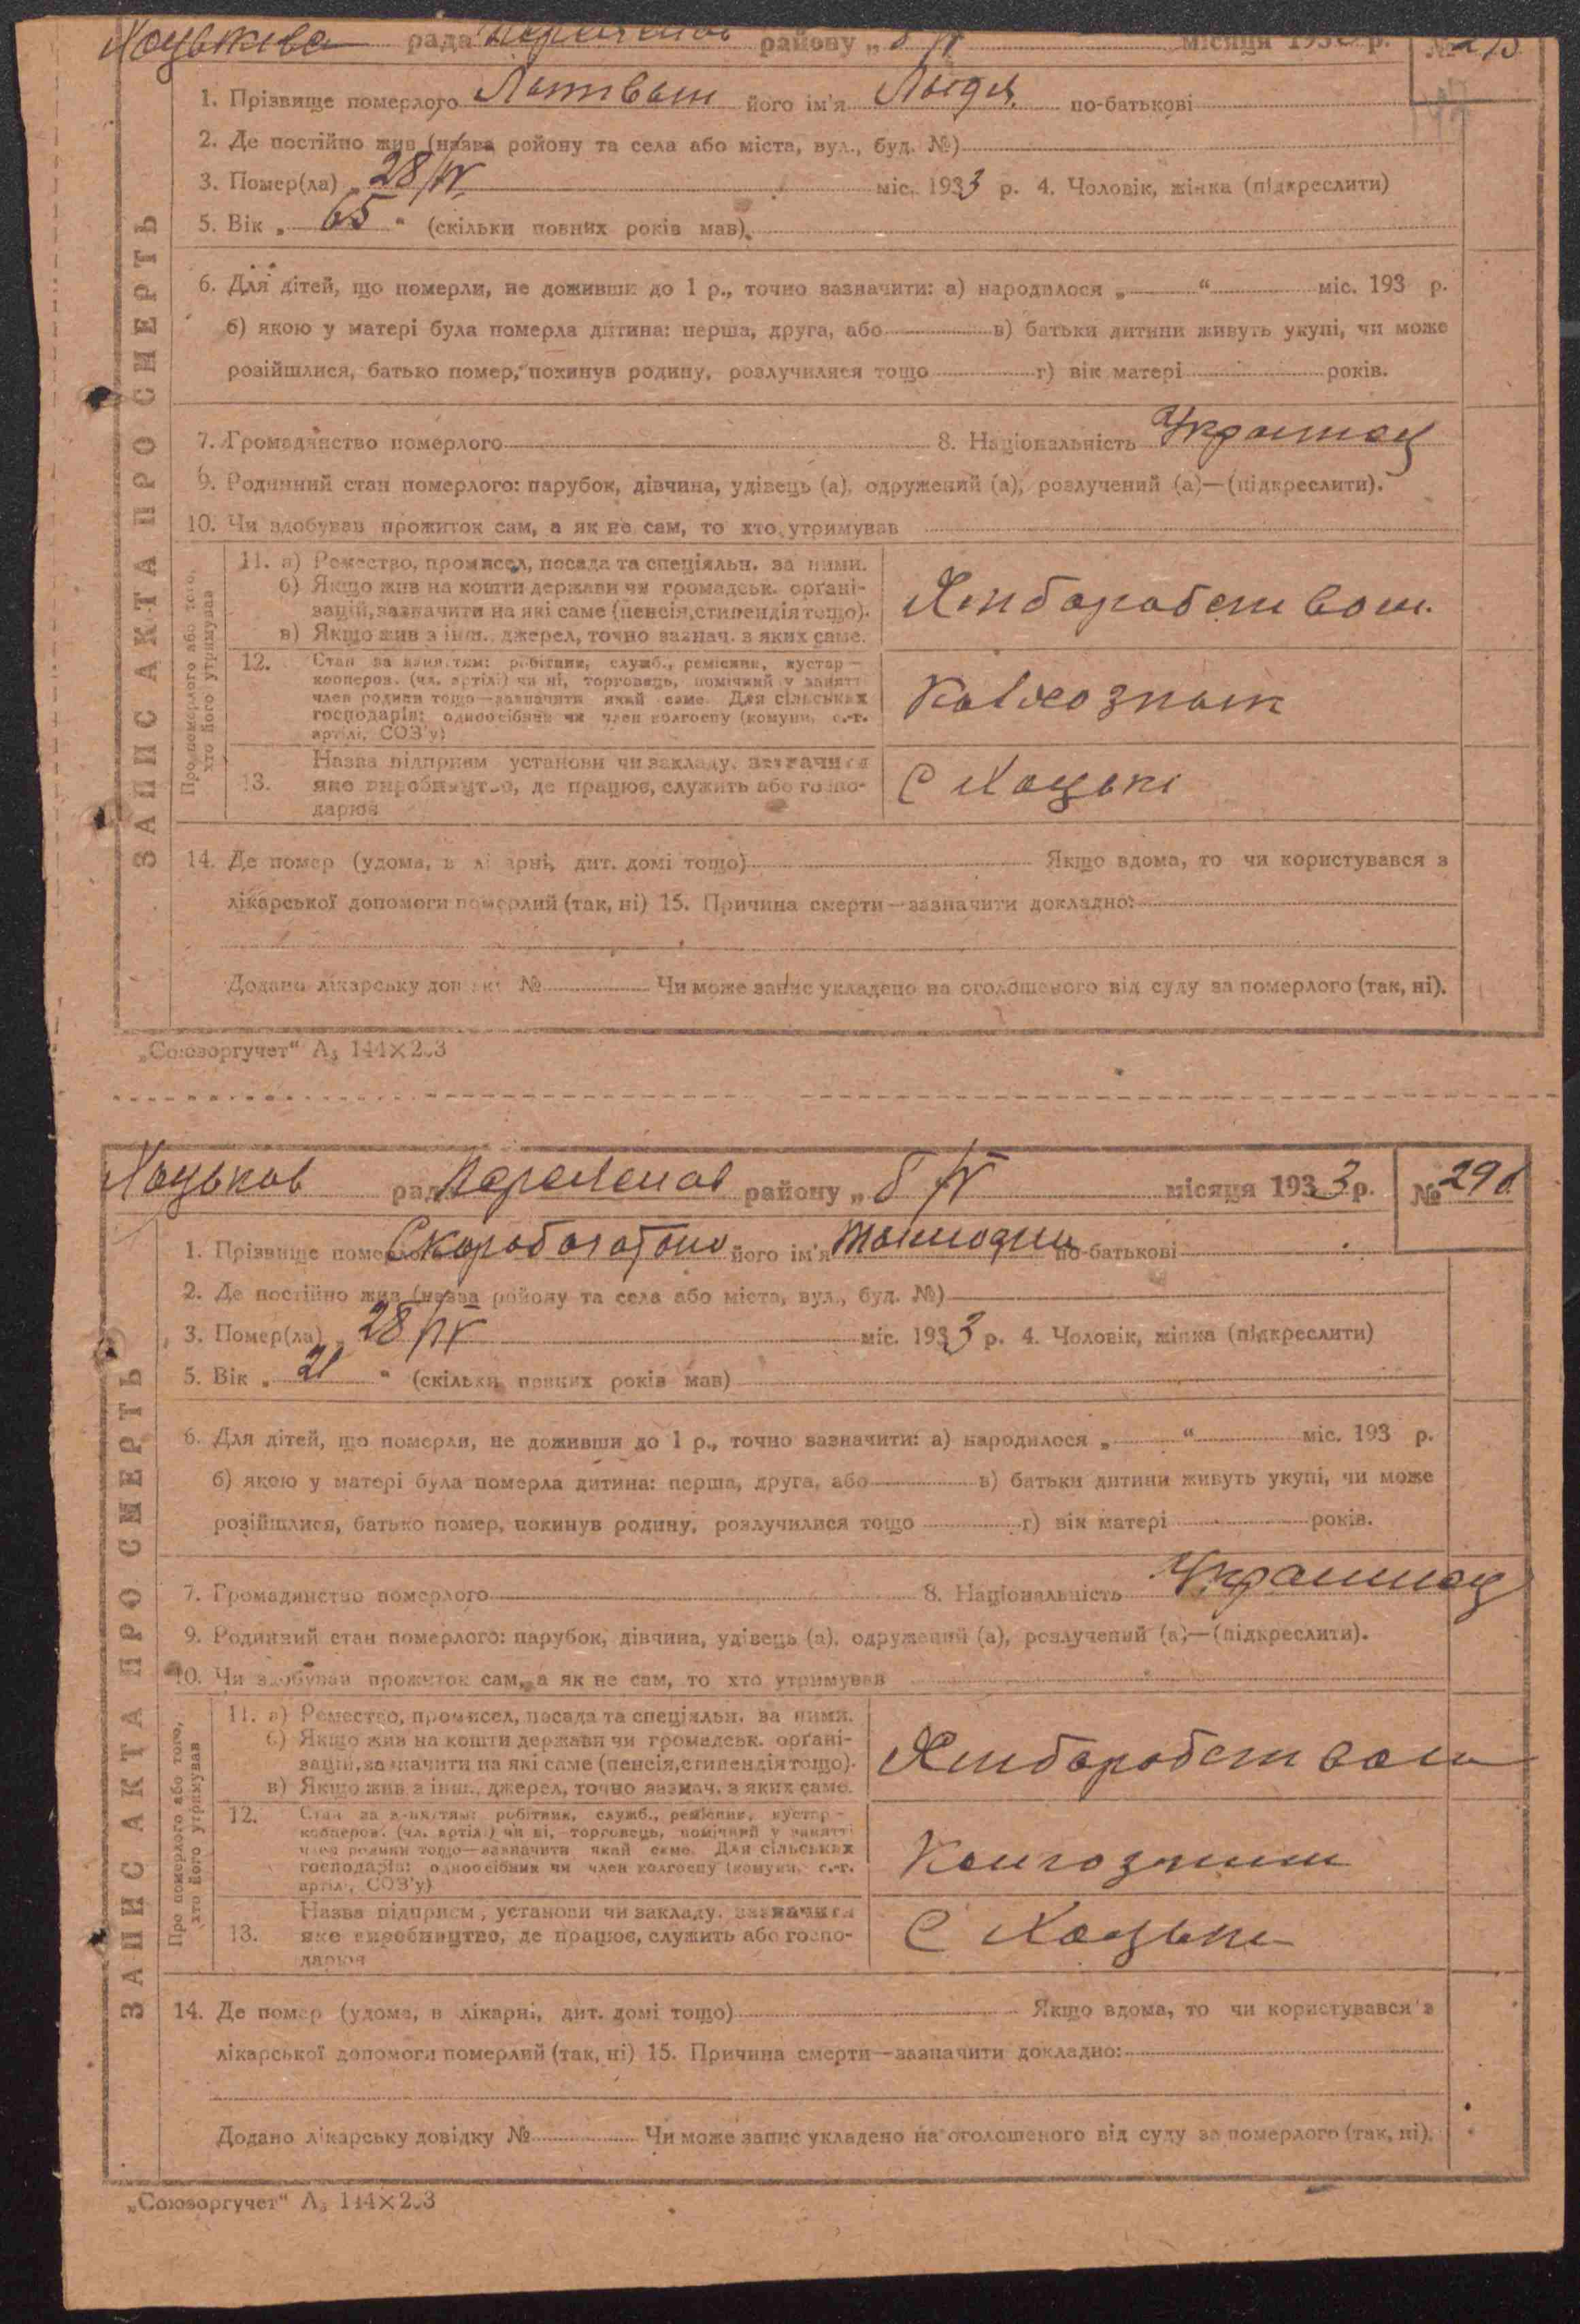 Хоцьківа рада району „ 8/IV місяця 1933 р. № 295
1. Прізвище померлого Литвин його ім'я Лиди по-батькові
2. Де постійно жив (назва ройону та села або міста, вул., буд. №)
3. Помер(ла) „ 28/IV міс. 1933 р. 4. Чоловік, жінка (підкреслити)
5. Вік „ 65 " (скільки повних років мав)
6. Для дітей, що померли, не доживши до 1 р., точно зазначити: а) народилося „ “ міс. 193 р.
б) якою у матері була померла дитина: перша, друга, або в) батьки дитини живуть укупі, чи може
розійшлися, батько помер, покинув родину, розлучилися тощо г) вік матері років.
7. Громадянство померлого 8. Національність Украинец
9. Родинний стан померлого: парубок, дівчина, удівець (а), одружений (а), розлучений (а)—(підкреслити).
10. Чи здобував прожиток сам, а як не сам, то хто утримував
ЗАПИС АКТА ПРО СМЕРТЬ
Про померлого або того,
хто його утримував
11. а) Ремество, промисел, посада та спеціяльн. за ними.
б) Якщо жив на кошти держави чи громадськ. орґані-
зацій, зазначити на які саме (пенсія, стипендія тощо).
в) Якщо жив з інш. джерел, точно зазнач. з яких саме.
Хлиборобством
12. Стан за заняттям: робітник, служб., ремісник, кустар-
кооперов. (чл. артілі) чи ні, торговець, помічний у занятті
член родини тощо—зазначити який саме. Для сільських
господарів: одноосібник чи член колгоспу (комуни, с.-г.
артілі, СОЗ'у)
Колхозник
13. Назва підприєм установи чи закладу, зазначити
яке виробництво, де працює, служить або госпо-
дарює
С Хоцьки
14. Де помер (удома, в лікарні, дит. домі тощо) Якщо вдома, то чи користувався з
лікарської допомоги померлий (так, ні) 15. Причина смерти—зазначити докладно:
Додано лікарську довідку № Чи може запис укладено на оголошеного від суду за померлого (так, ні).
„Союзоргучет“ А₅ 144×203
Хоцьков рада району „ 8/IV місяця 1933 р. № 296
1. Прізвище померлого його ім'я по-батькові
2. Де постійно жив (назва ройону та села або міста, вул., буд. №)
3. Помер(ла) „ 28/IV міс. 1933 р. 4. Чоловік, жінка (підкреслити)
5. Вік „ 21 " (скільки повних років мав)
6. Для дітей, що померли, не доживши до 1 р., точно зазначити: а) народилося „ “ міс. 193 р.
б) якою у матері була померла дитина: перша, друга, або в) батьки дитини живуть укупі, чи може
розійшлися, батько помер, покинув родину, розлучилися тощо г) вік матері років.
7. Громадянство померлого 8. Національність Украинец
9. Родинний стан померлого: парубок, дівчина, удівець (а), одружений (а), розлучений (а)—(підкреслити).
10. Чи здобував прожиток сам, а як не сам, то хто утримував
ЗАПИС АКТА ПРО СМЕРТЬ
Про померлого або того,
хто його утримував
11. а) Ремество, промисел, посада та спеціяльн. за ними.
б) Якщо жив на кошти держави чи громадськ. орґані-
зацій, зазначити на які саме (пенсія, стипендія тощо).
в) Якщо жив з інш. джерел, точно зазнач. з яких саме.
Хлиборобством
12. Стан за заняттям: робітник, служб., ремісник, кустар-
кооперов. (чл. артілі) чи ні, торговець, помічний у занятті
член родини тощо—зазначити який саме. Для сільських
господарів: одноосібник чи член колгоспу (комуни, с.-г.
артілі, СОЗ'у)
13. Назва підприєм, установи чи закладу, зазначити
яке виробництво, де працює, служить або госпо-
дарює
С Хоцьки
14. Де помер (удома, в лікарні, дит. домі тощо) Якщо вдома, то чи користувався з
лікарської допомоги померлий (так, ні) 15. Причина смерти—зазначити докладно:
Додано лікарську довідку № Чи може запис укладено на оголошеного від суду за померлого (так, ні).
„Союзоргучет“ А₅ 144×203